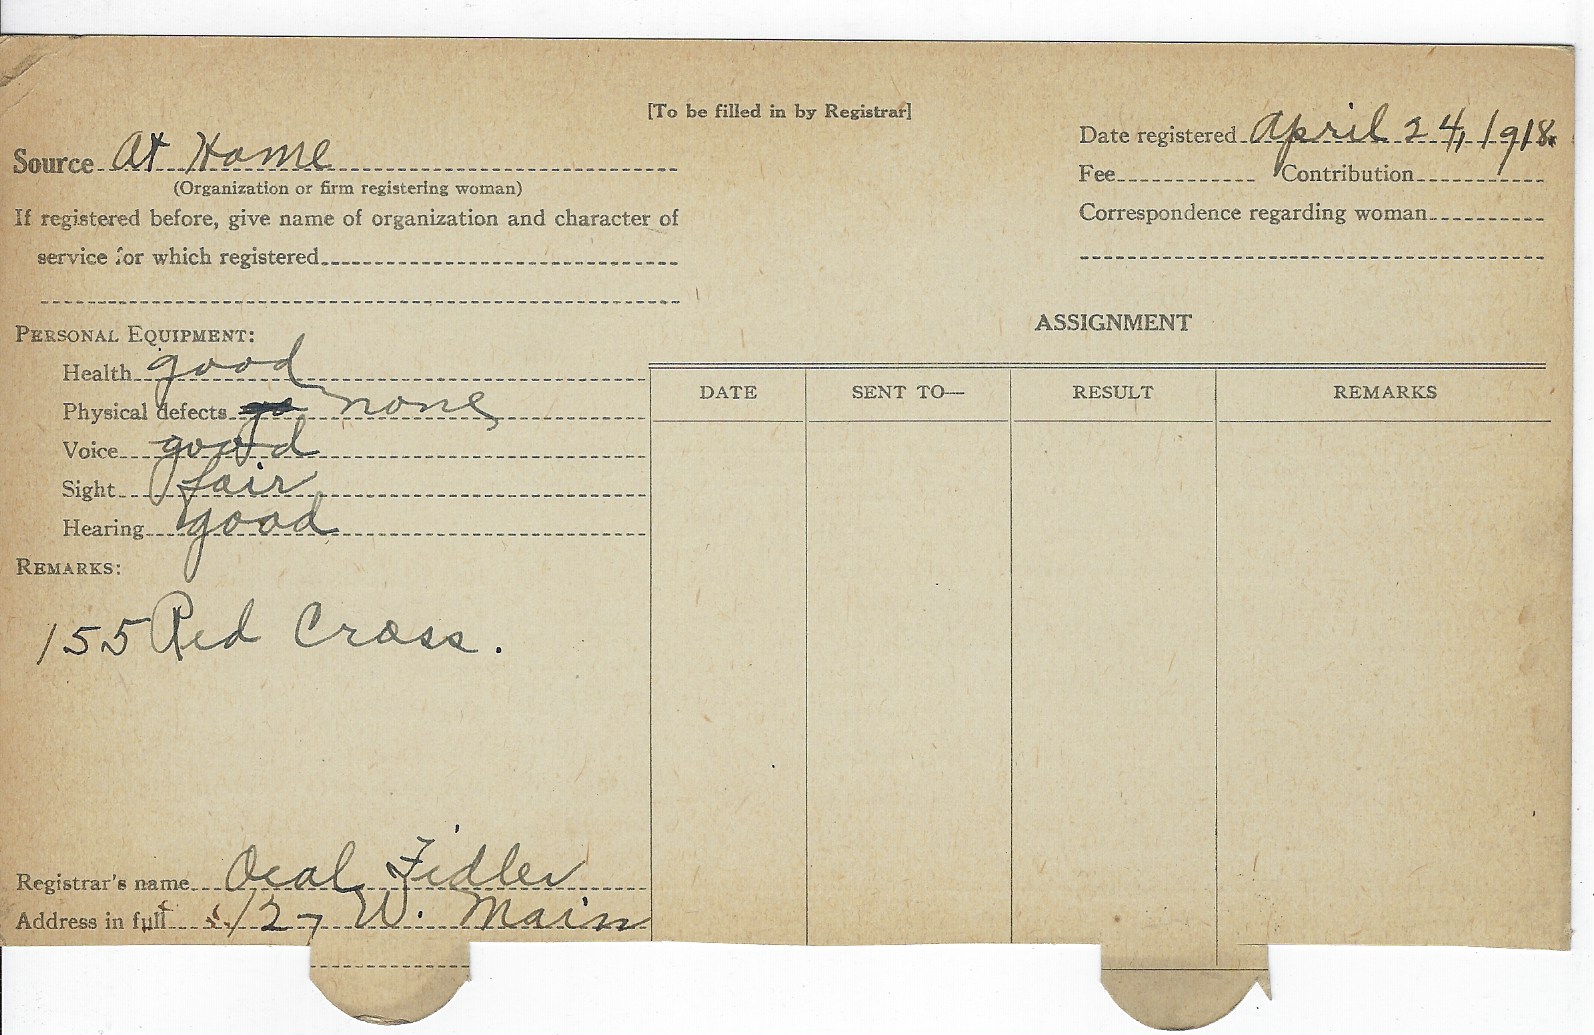 [To be filled in by Registrar]
Source At Home
(Organization or firm registering woman)
If registered before, give name of organization and character of
service for which registered
Date registered April 24, 1918.
Fee Contribution
Correspondence regarding woman
PERSONAL EQUIPMENT:
Health good
Physical defects none
Voice good
Sight fair
Hearing good
REMARKS:
155 Red Cross.
Registrar's name Ocal Fidler
Address in full 127 W. Main
ASSIGNMENT
DATE SENT TO— RESULT REMARKS